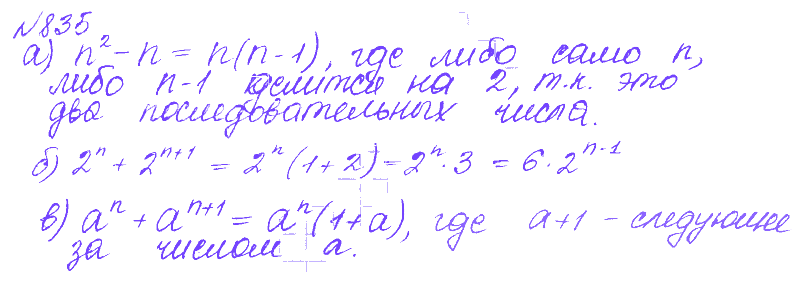 №835
а) n² - n = n(n-1), где либо само n,
либо n-1 делится на 2, т.к. это
два последовательных числа.
б) 2ⁿ + 2ⁿ⁺¹ = 2ⁿ(1+2) = 2ⁿ·3 = 6·2ⁿ⁻¹
в) aⁿ + aⁿ⁺¹ = aⁿ(1+a), где a+1 - следующее
за числом a.